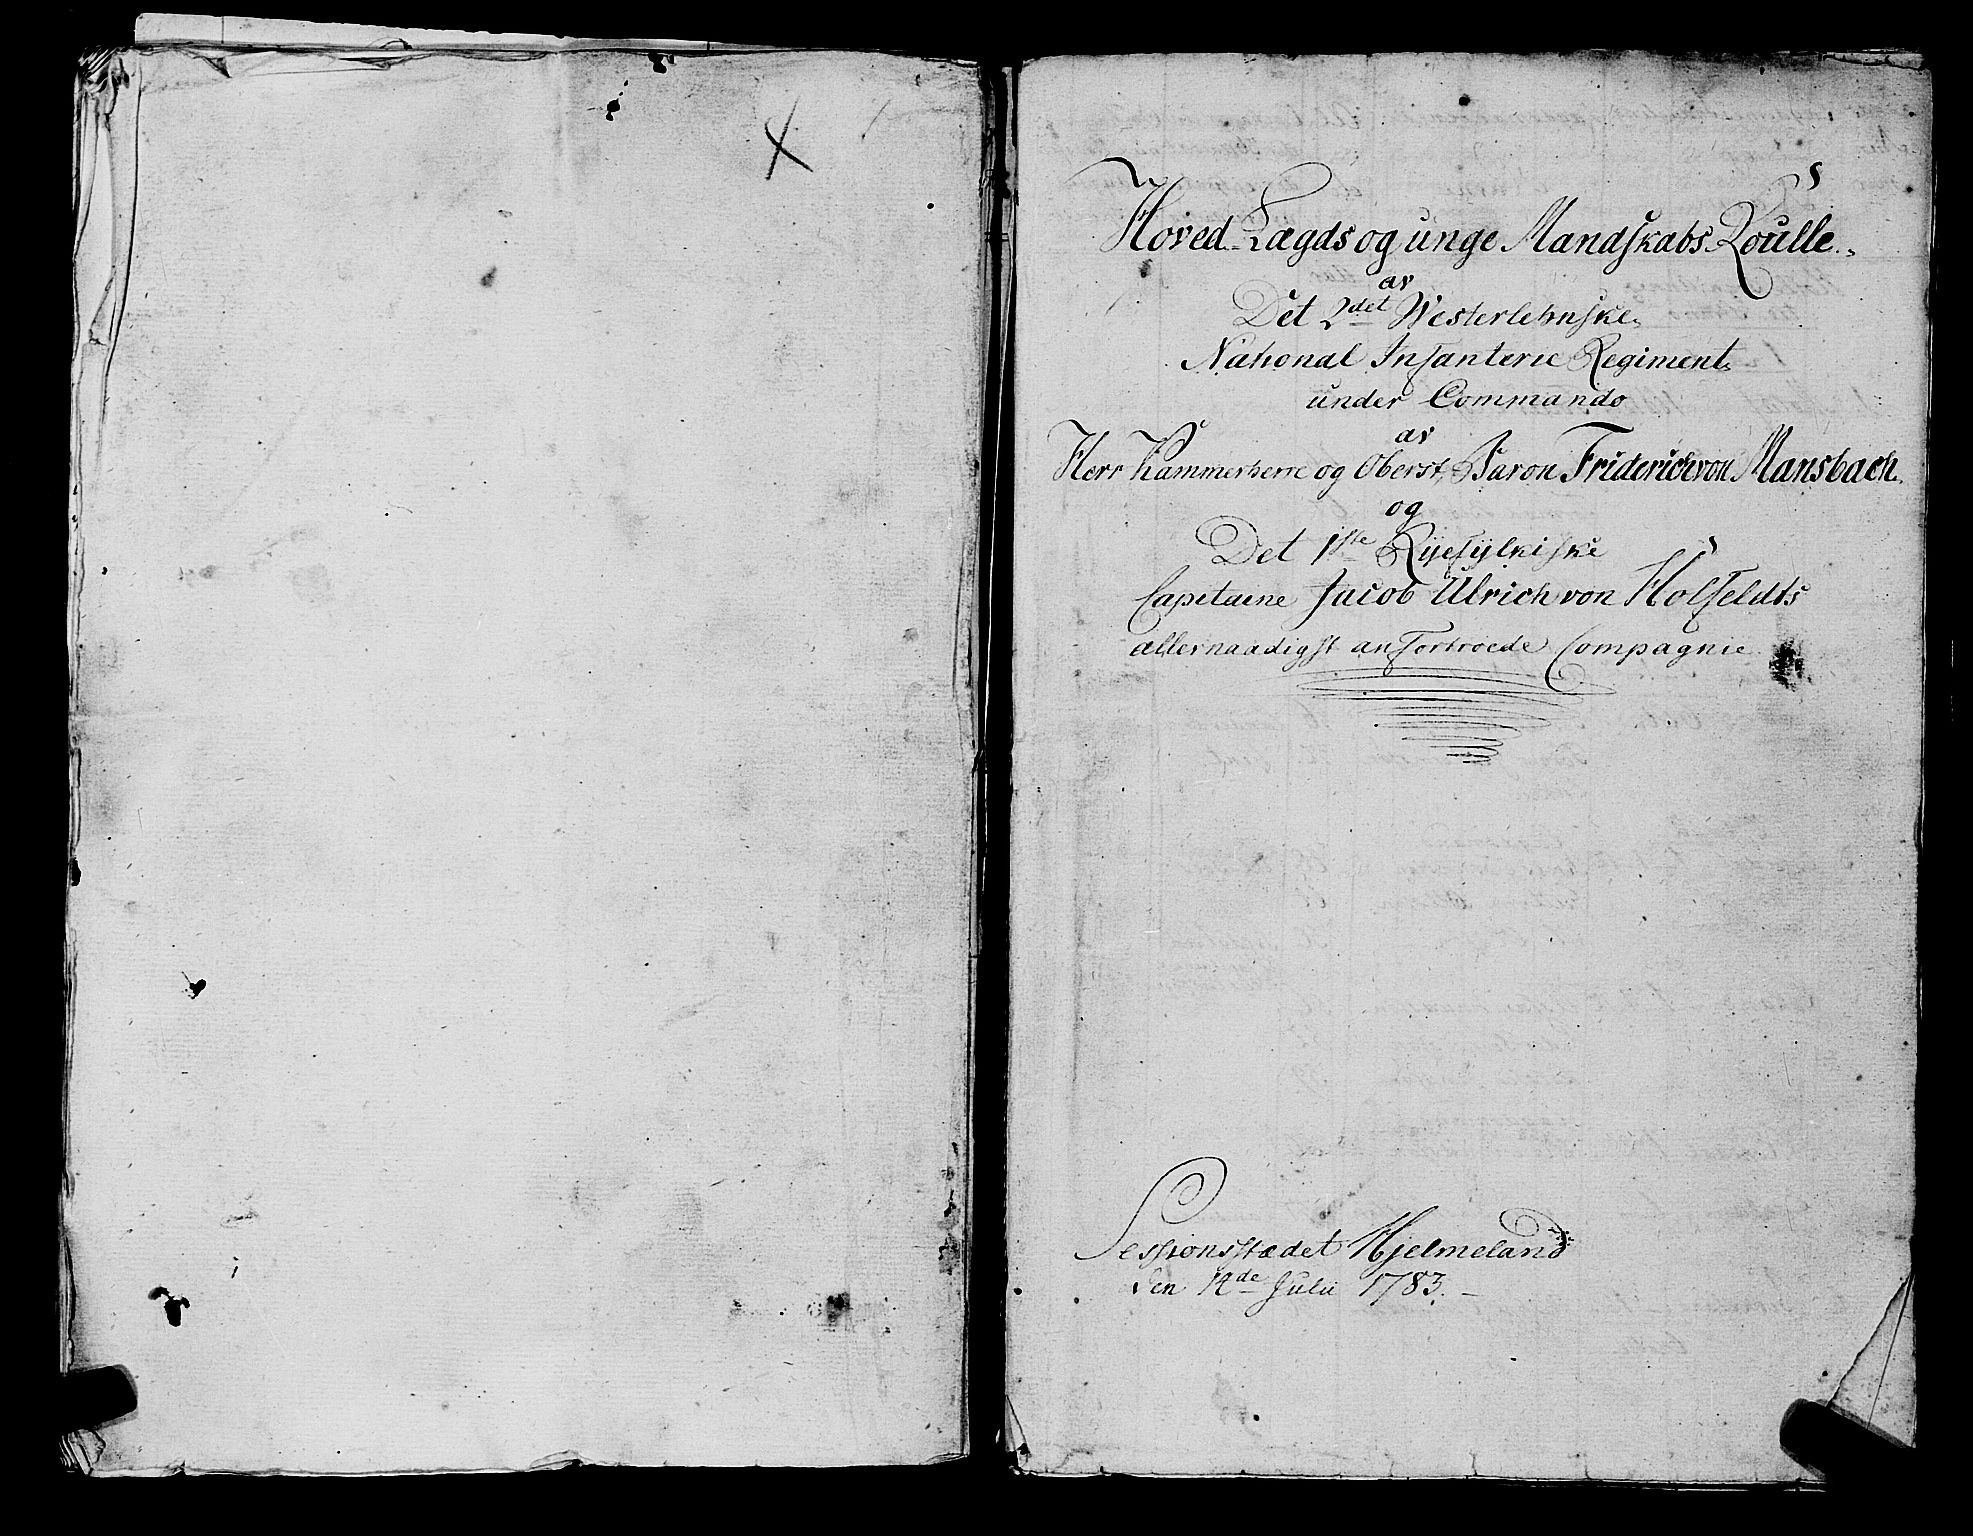 X
Hoved-Lægds og unge Mandskabs Roulle
av
Det 2det Westerlehnske
National Infanterie Regiment
under Commando
av
Herr Kammerherre og Oberst, Baron Friderich von Mansbach
og
Det 1ste Ryefylkiske
Capitaine Jacob Ulrich von Holfeldts
allernaadigst anfortroede Compagnie
Sessionsstædet Hjelmeland
den 14de Julii 1783.